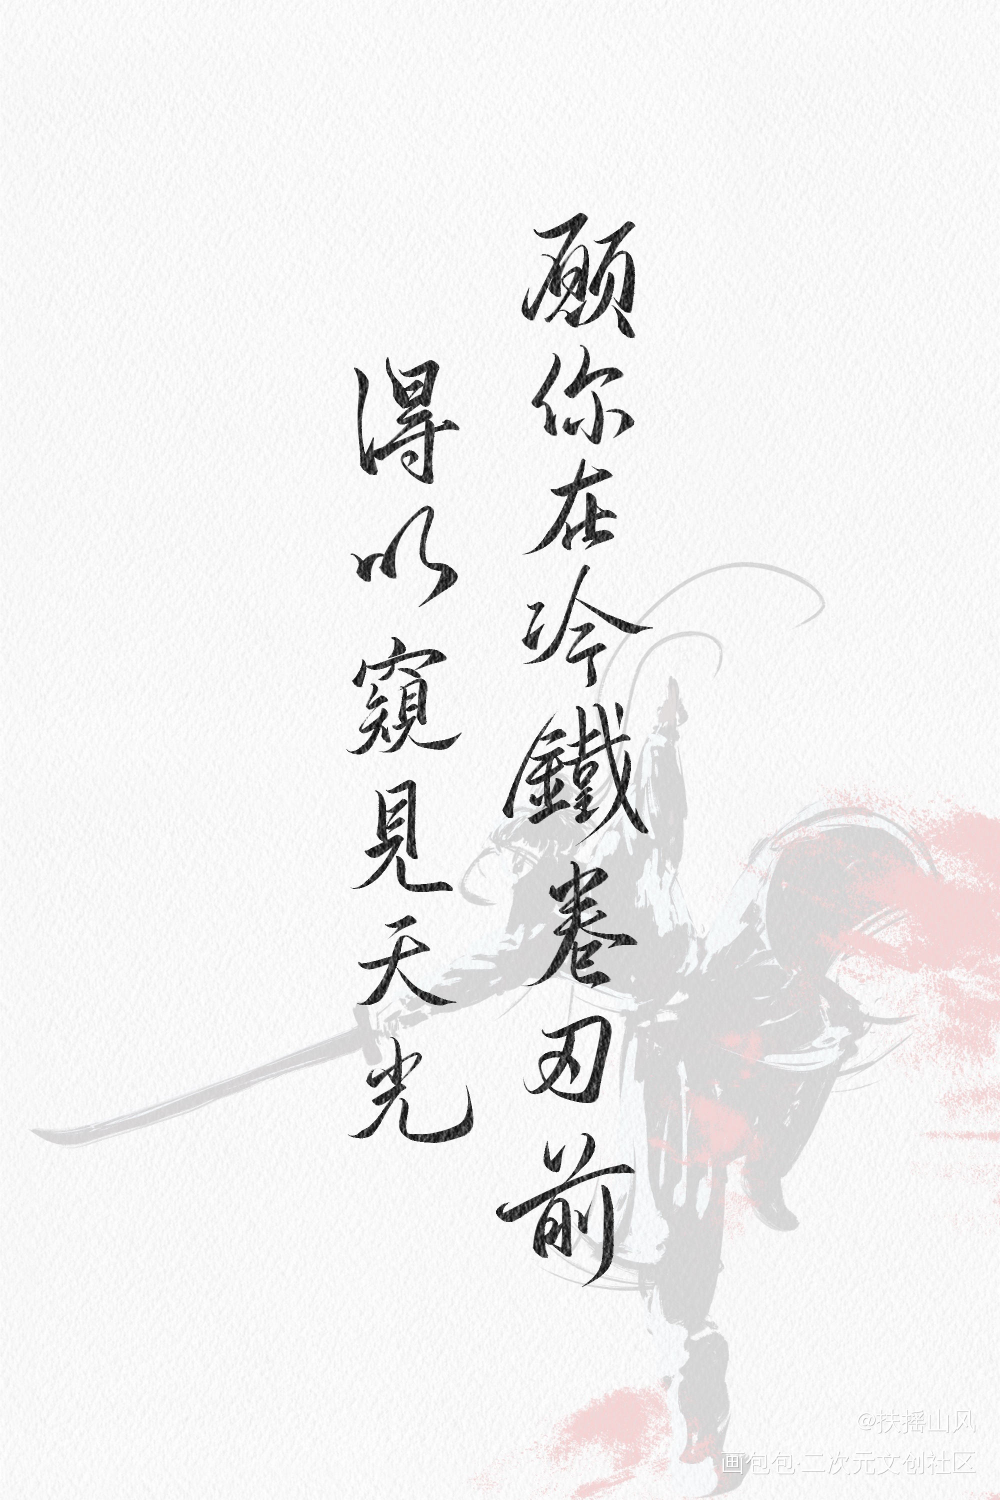 愿你在冷鐵卷刃前
得以窺見天光
@扶摇山风
画包包·二次元文创社区